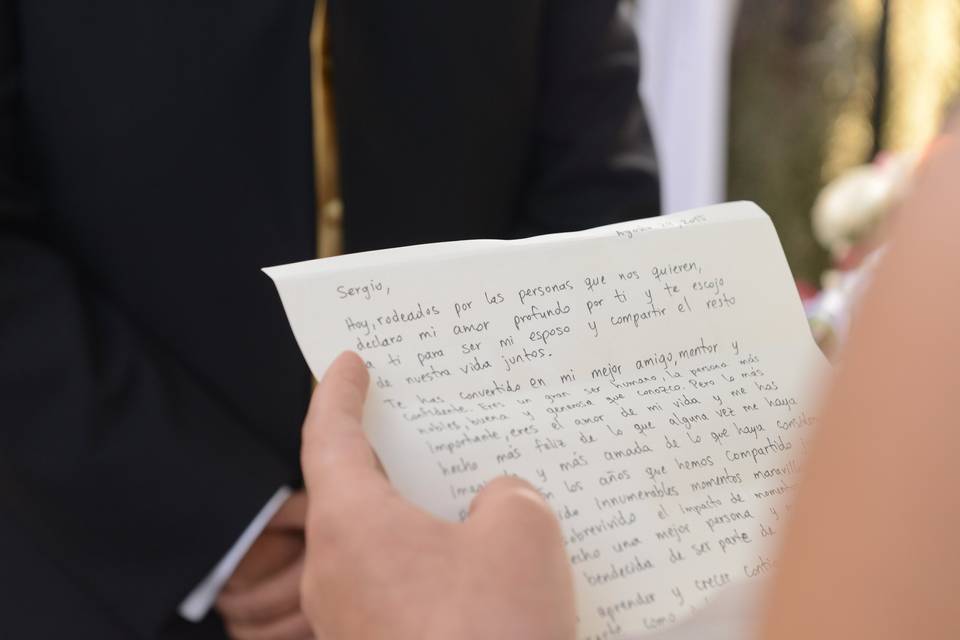 Agosto 24, 2015
Sergio,
Hoy, rodeados por las personas que nos quieren,
declaro mi amor profundo por ti y te escojo
a ti para ser mi esposo y compartir el resto
de nuestra vida juntos.
Te has convertido en mi mejor amigo, mentor y
confidente. Eres un gran ser humano, la persona más
nobles, buena y generosa que conozco. Pero lo más
importante, eres el amor de mi vida y me has
hecho más feliz de lo que alguna vez me haya
y más amada de lo que haya
los años que hemos compartido
innumerables momentos
el impacto de
una mejor persona y
bendecida de ser parte de
aprender y crecer
como